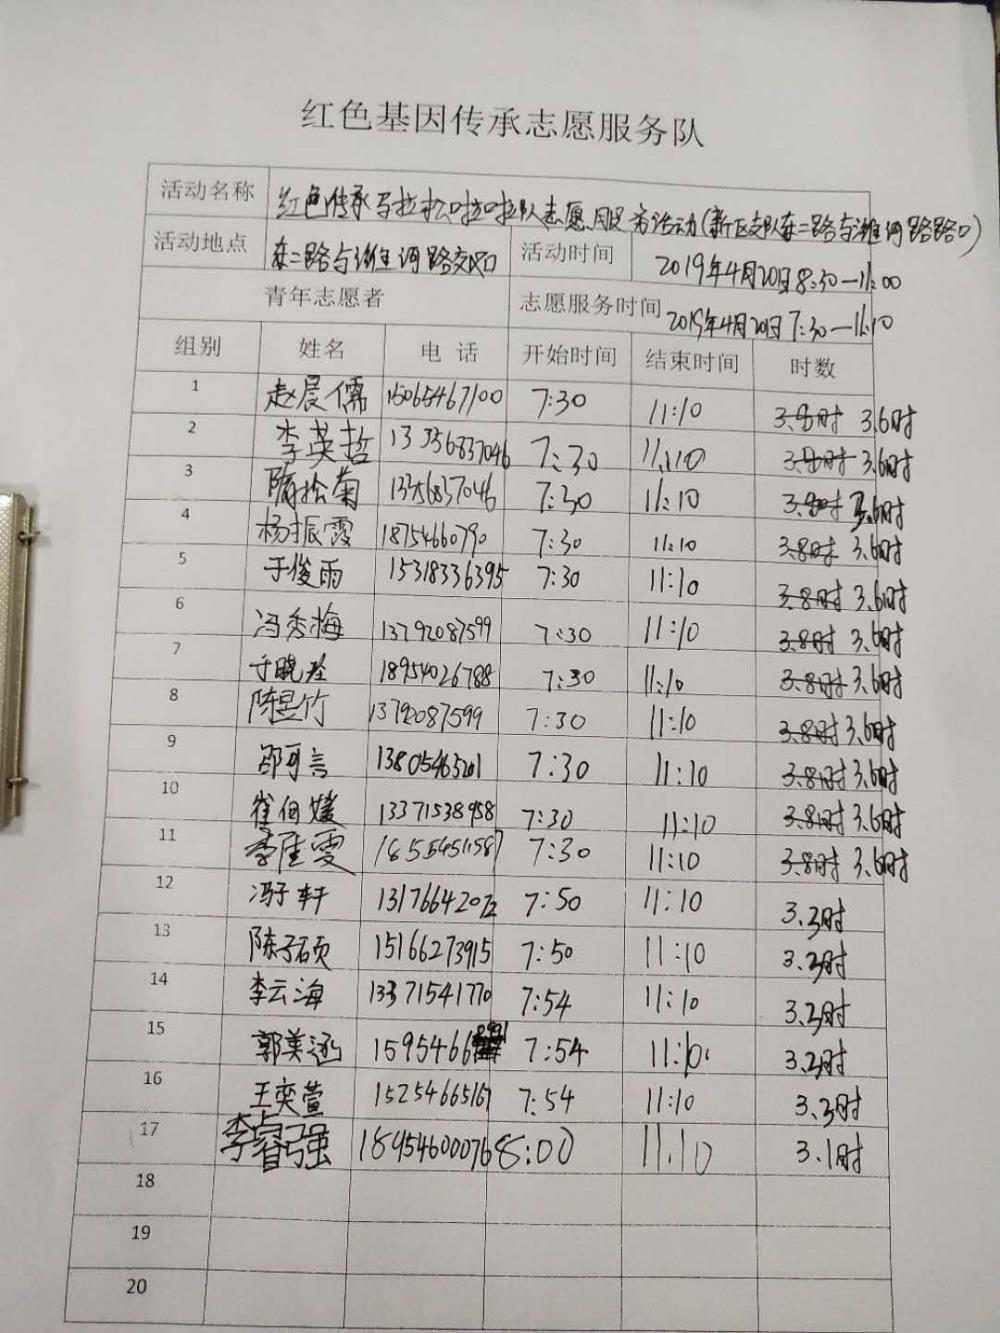 红色基因传承志愿服务队
活动名称 红色传承马拉松啦啦队志愿服务活动(新区支队东二路与淮河路路口)
活动地点 东二路与淮河路交叉口 活动时间 2019年4月20日8:30—11:00
青年志愿者 志愿服务时间 2019年4月20日7:30—11:10
组别 姓名 电话 开始时间 结束时间 时数
1 赵晨儒 15065467100 7:30 11:10 3.8时 3.6时
2 李英哲 13356837046 7:30 11:10 3.8时 3.6时
3 隋松菊 13356837046 7:30 11:10 3.8时 3.6时
4 杨振霞 18754660790 7:30 11:10 3.8时 3.6时
5 于俊雨 15318336395 7:30 11:10 3.8时 3.6时
6 冯秀梅 13792087599 7:30 11:10 3.8时 3.6时
7 于晓 18954026788 7:30 11:10 3.8时 3.6时
8 陈昱竹 13792087599 7:30 11:10 3.8时 3.6时
9 邵可言 13805465201 7:30 11:10 3.8时 3.6时
10 崔伯媛 13371538958 7:30 11:10 3.8时 3.6时
11 李佳雯 18554511587 7:30 11:10 3.8时 3.6时
12 冯子轩 13176642072 7:50 11:10 3.3时
13 陈子硕 15166273915 7:50 11:10 3.3时
14 李云海 13371541770 7:54 11:10 3.3时
15 郭美涵 1595466 7:54 11:10 3.3时
16 王奕萱 15254665167 7:54 11:10 3.3时
17 李睿强 18954600076 8:00 11:10 3.1时
18
19
20